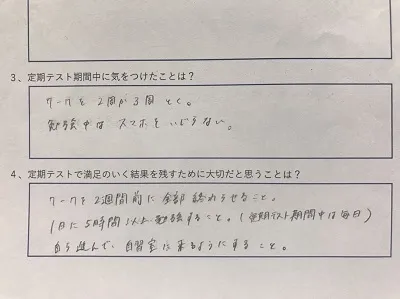 3、定期テスト期間中に気をつけたことは？
ワークを2周か3周とく。
勉強中はスマホをいじらない。
4、定期テストで満足のいく結果を残すために大切だと思うことは？
ワークを2週間前に全部終わらせること。
1日に5時間以上勉強すること。(定期テスト期間中は毎日)
自ら進んで、自習室に来るようにすること。